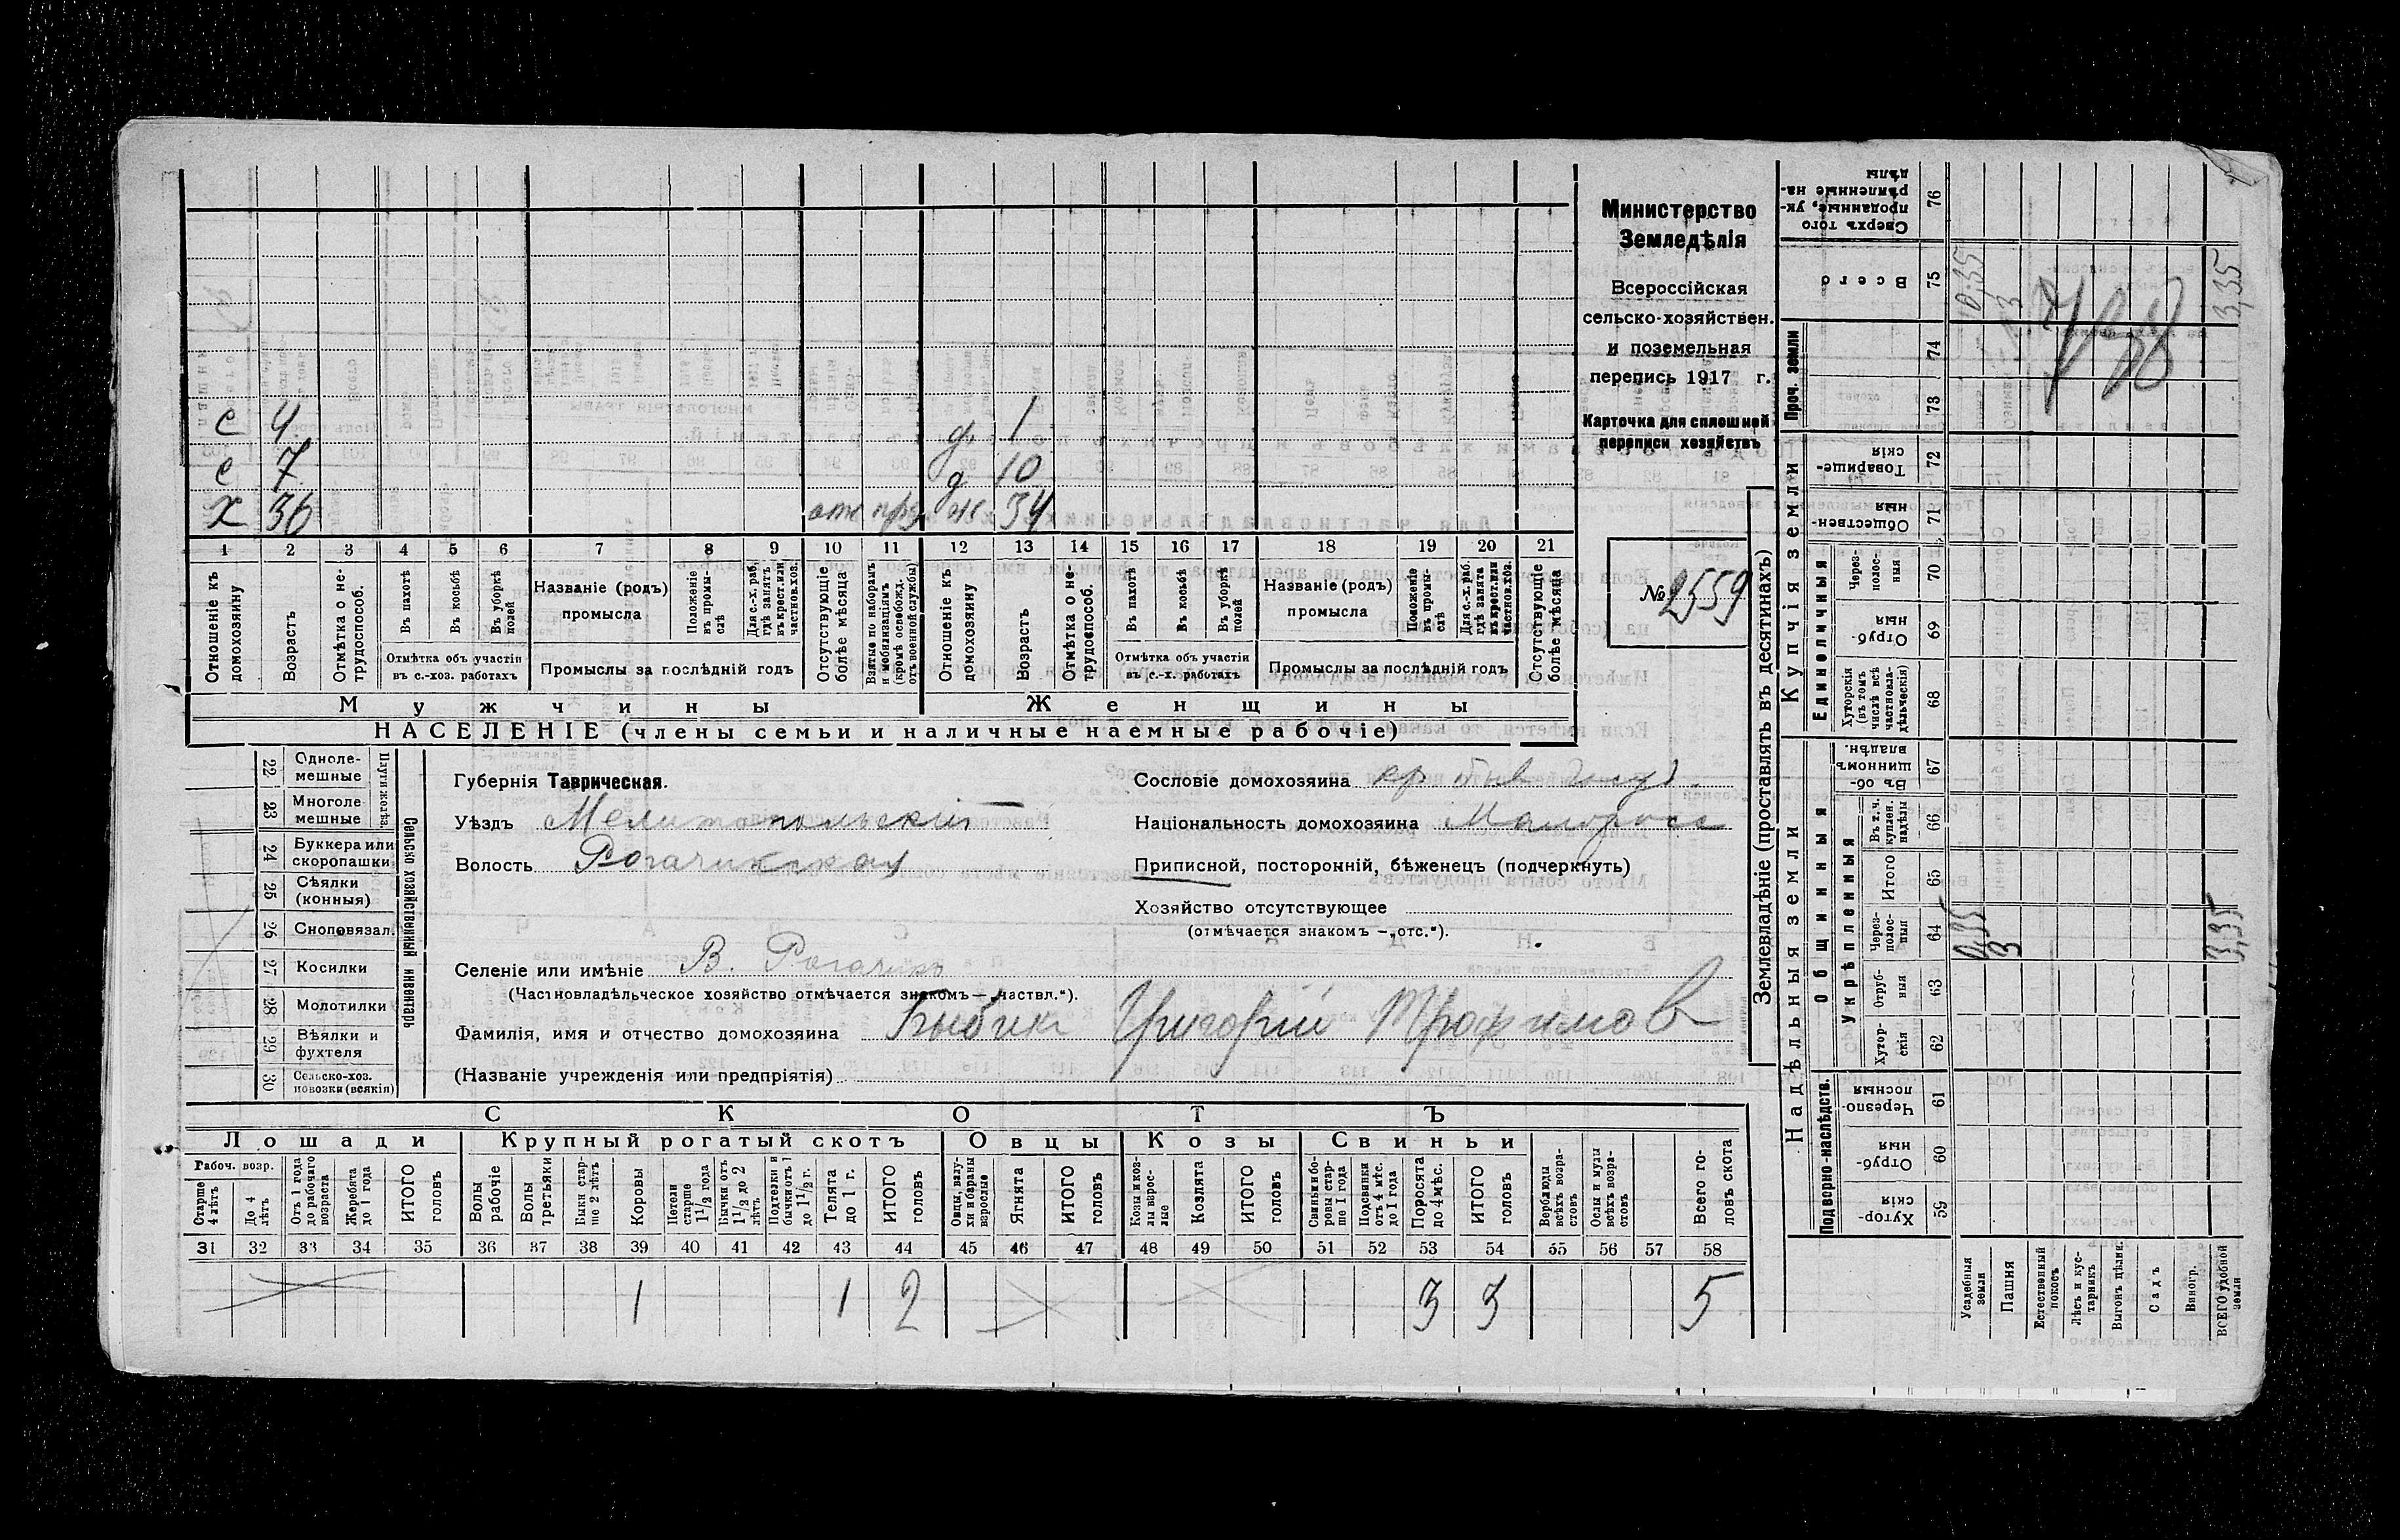 Министерство
Земледѣлія
Всероссійская
сельско-хозяйствен.
и поземельная
перепись 1917 г.
Карточка для сплошной
переписи хозяйствъ
№ 2559
с 4 д. 1
с 7 д. 10
х 36 отс ж 34
1 2 3 4 5 6 7 8 9 10 11 12 13 14 15 16 17 18 19 20 21
Отношеніе къ домохозяину
Возрастъ
Отмѣтка о не-трудоспособ.
Въ пахотѣ
Въ косьбѣ
Въ уборкѣ полей
Отмѣтка объ участіи въ с.-хоз. работахъ
Названіе (родъ) промысла
Положеніе въ промы-слѣ
Для с.-х. раб. гдѣ занятъ въ крест. или частнов. хоз.
Промыслы за послѣдній годъ
Отсутствующіе болѣе мѣсяца
Взятые по наборамъ и мобилизаціямъ (кромѣ освобожд. отъ военной службы)
Отношеніе къ домохозяину
Возрастъ
Отмѣтка о не-трудоспособ.
Въ пахотѣ
Въ косьбѣ
Въ уборкѣ полей
Отмѣтка объ участіи въ с.-х. работахъ
Названіе (родъ) промысла
Положеніе въ промы-слѣ
Для с.-х. раб. гдѣ занята въ крест. или частнов. хоз.
Промыслы за послѣдній годъ
Отсутствующіе болѣе мѣсяца
Мужчины Женщины
НАСЕЛЕНІЕ (члены семьи и наличные наемные рабочіе)
22 Однолемешные
23 Многолемешные
Плуги желѣз.
24 Буккера или скоропашки
25 Сѣялки (конныя)
26 Сноповязал.
27 Косилки
28 Молотилки
29 Вѣялки и фухтеля
30 Сельско-хоз. повозки (всякія)
Сельско хозяйственный инвентарь
Губернія Таврическая.
Уѣздъ Мелитопольскій
Волость Рогачикская
Селеніе или имѣніе В. Рогачикъ
(Частновладѣльческое хозяйство отмѣчается знакомъ — „частвл.“).
Фамилія, имя и отчество домохозяина Бибик Григорій Трофимов
(Названіе учрежденія или предпріятія)
Сословіе домохозяина кр бывш
Національность домохозяина Малоросс
Приписной, посторонній, бѣженецъ (подчеркнуть)
Хозяйство отсутствующее
(отмѣчается знакомъ — „отс.“).
СКОТЪ
Лошади Крупный рогатый скотъ Овцы Козы Свиньи
Рабоч. возр.
Старше 4 лѣтъ
До 4 лѣтъ
Отъ 1 года до рабочаго возраста
Жеребята до 1 года
ИТОГО головъ
Волы рабочіе
Волы третьяки
Быки старше 2 лѣтъ
Коровы
Нетели старше 1½ года
Бычки отъ 1½ до 2 лѣтъ
Подтелки и бычки отъ 1 до 1½ г.
Телята до 1 г.
ИТОГО головъ
Овцы, валухи и бараны взрослые
Ягнята
ИТОГО головъ
Козы и козлы взрослые
Козлята
ИТОГО головъ
Свиньи и боровы старше 1 года
Подсвинки отъ 4 мѣс. до 1 года
Поросята до 4 мѣс.
ИТОГО головъ
Верблюды всѣхъ возрастовъ
Ослы и мулы всѣхъ возрастовъ
Всего головъ скота
31 32 33 34 35 36 37 38 39 40 41 42 43 44 45 46 47 48 49 50 51 52 53 54 55 56 57 58
1 1 2 3 3 5
Землевладѣніе (проставлять въ десятинахъ)
Надѣльныя земли
Купчія земли
Проч. земли
Подворно-наслѣдств.
Общинныя
Укрѣпленныя
Единоличныя
Сверхъ того проданные, укрѣпленные надѣлы 76
Всего 75 0,35 3 3,35
74
73
Товарищескія 72
Общественныя 71
Черезполосныя 70
Отрубныя 69
Хуторскія (въ томъ числѣ всѣ частновладѣльческія) 68
Въ общинномъ владѣн. 67
Въ т. ч. куплен. надѣлы 66
Итого 65
Черезполосныя 64 0,35 3 3,35
Отрубныя 63
Хуторскія 62
Черезполосныя 61
Отрубныя 60
Хуторскія 59
Усадебныя земли
Пашня
Естественный покосъ
Лѣсъ и кустарникъ
Выгонъ цѣлин.
Садъ
Виногр.
ВСЕГО удобной земли